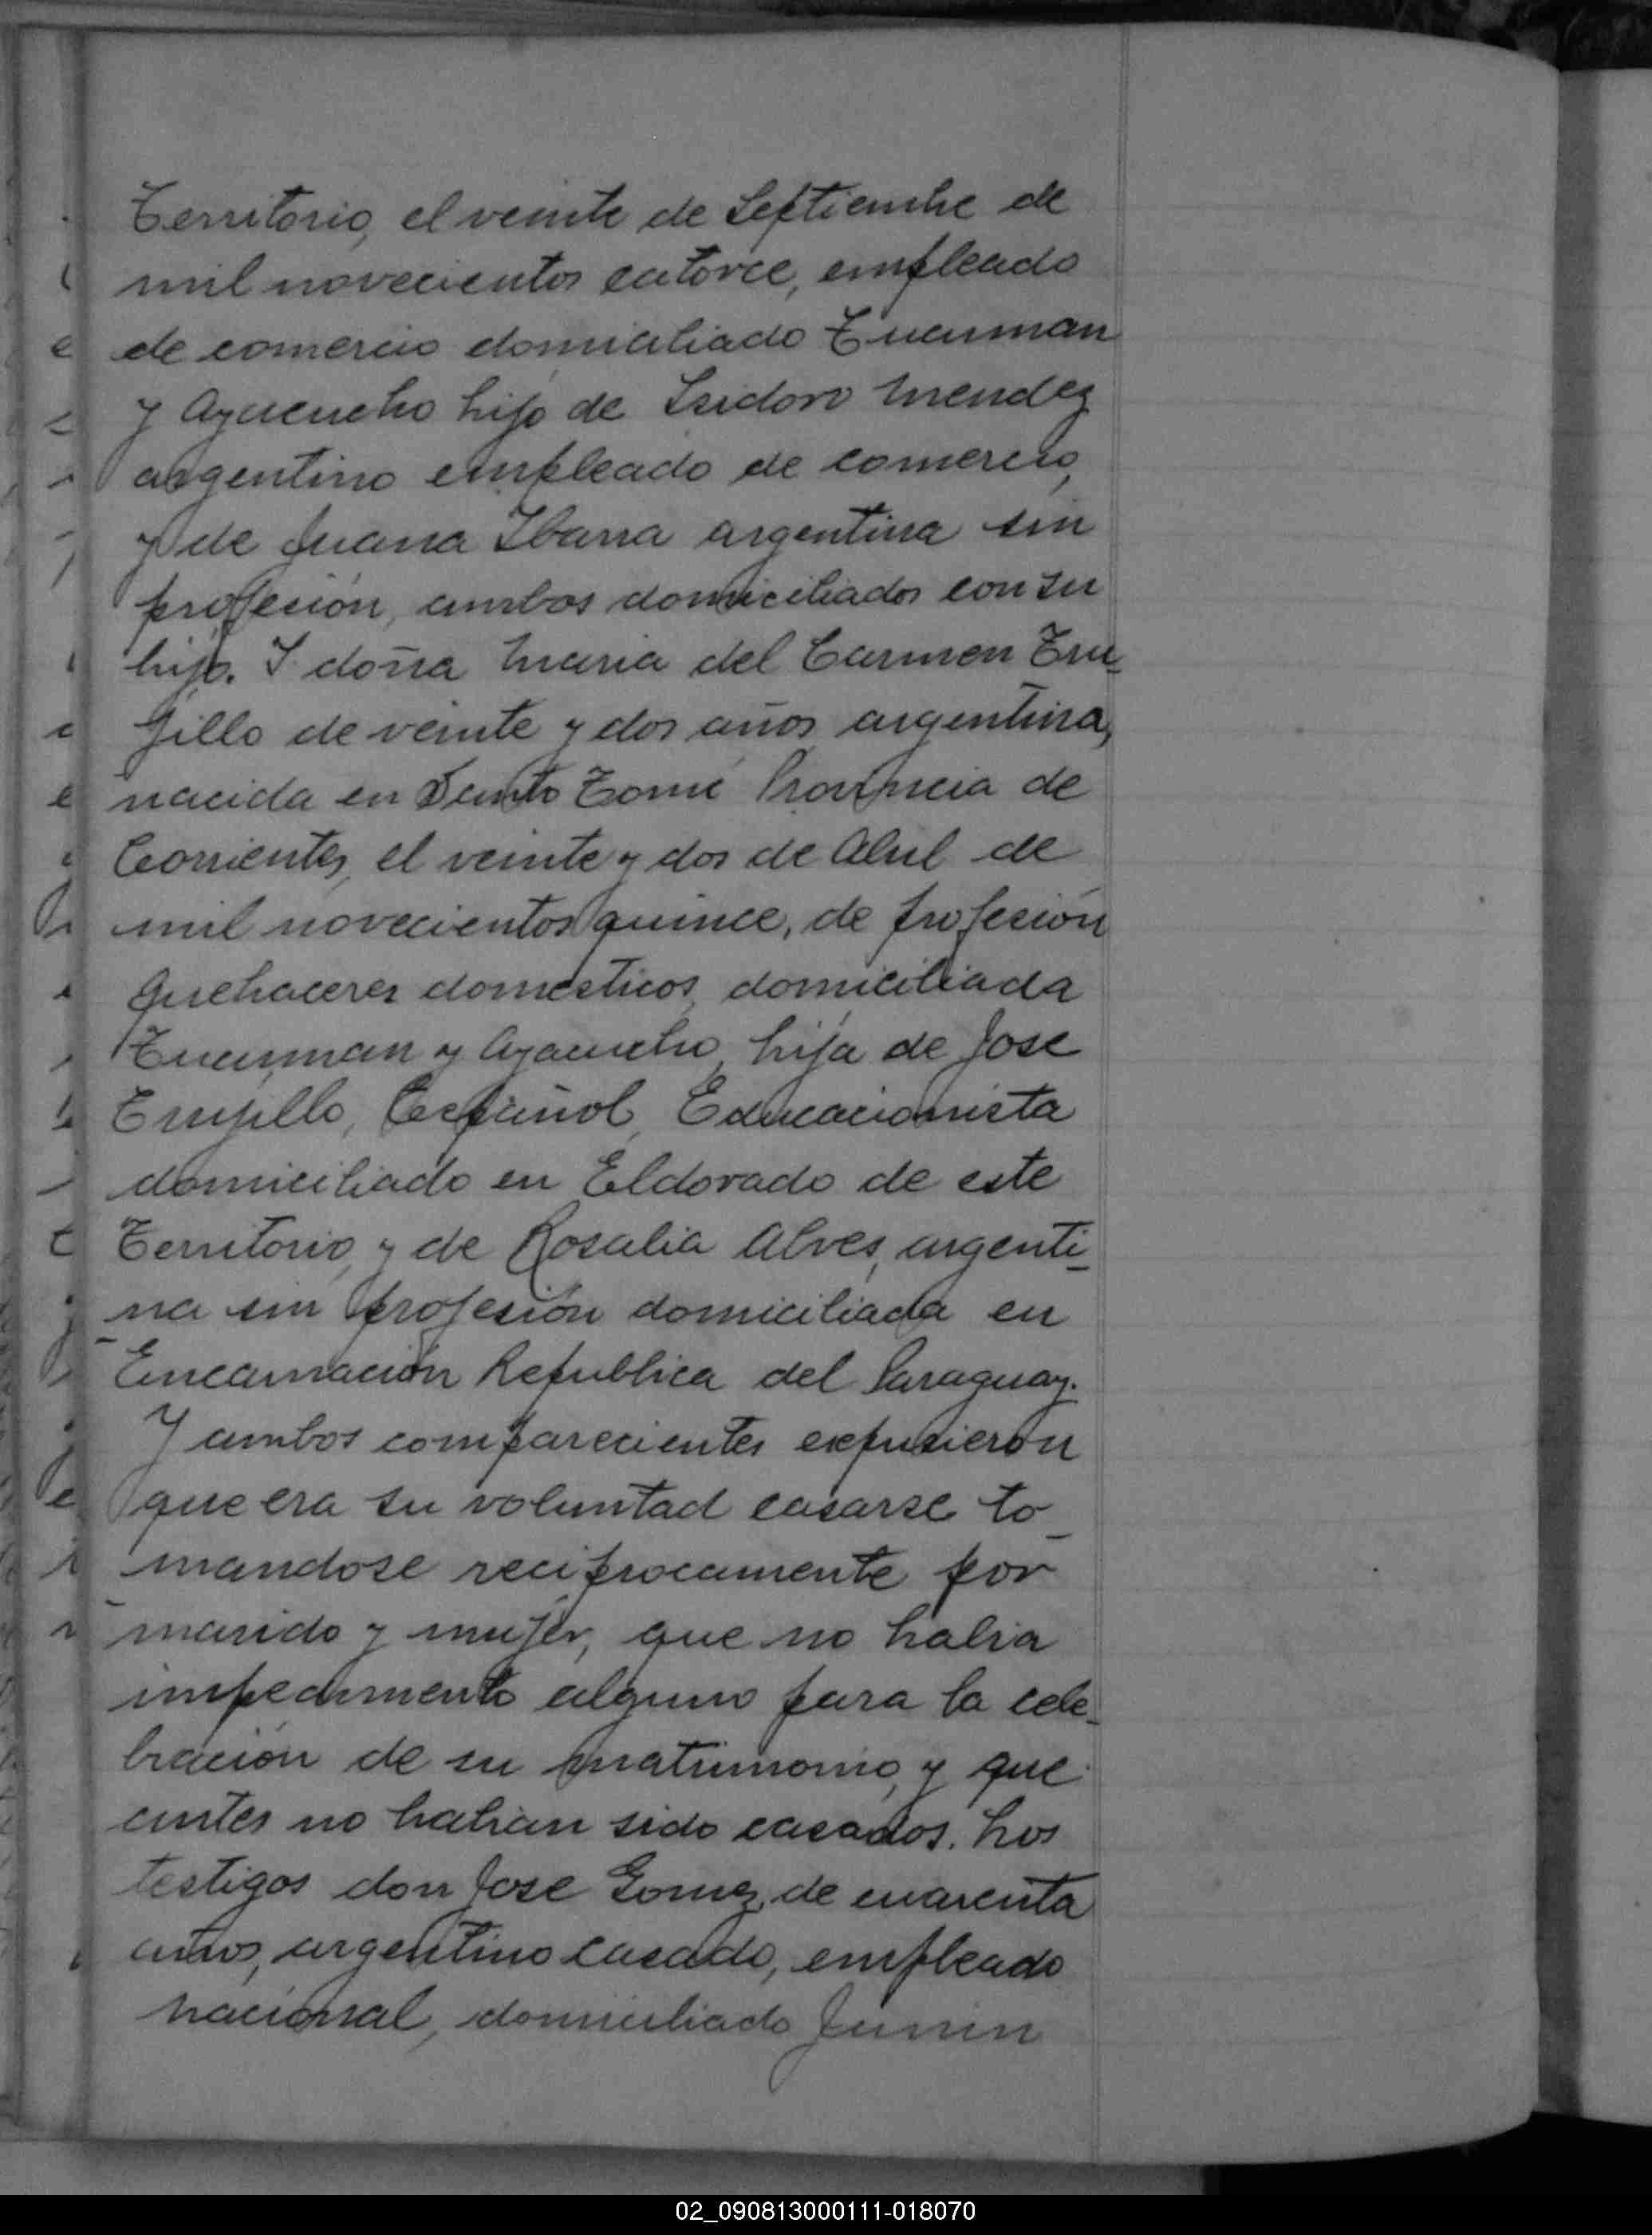 Territorio, el veinte de Septiembre de
mil novecientos catorce, empleado
de comercio domiciliado Tucuman
y Ayacucho hijo de Isidoro Mendez
argentino empleado de comercio,
y de Juana Ibarra argentina sin
profesión, ambos domiciliados con su
hijo. Y doña Maria del Carmen Tru-
jillo de veinte y dos años argentina,
nacida en Santo Tomé Provincia de
Corrientes, el veinte y dos de Abril de
mil novecientos quince, de profesión
quehaceres domesticos, domiciliada
Tucuman y Ayacucho, hija de Jose
Trujillo, Español, Educacionista
domiciliado en Eldorado de este
Territorio, y de Rosalia Alves, argenti-
na sin profesión domiciliada en
Encarnación Republica del Paraguay.
Y ambos comparecientes expusieron
que era su voluntad casarse to-
mandose reciprocamente por
marido y mujer, que no habia
impedimento alguno para la cele-
bración de su matrimonio, y que
antes no habian sido casados. Los
testigos don Jose Gomez, de cuarenta
años, argentino casado, empleado
nacional, domiciliado Junin
02_090813000111-018070